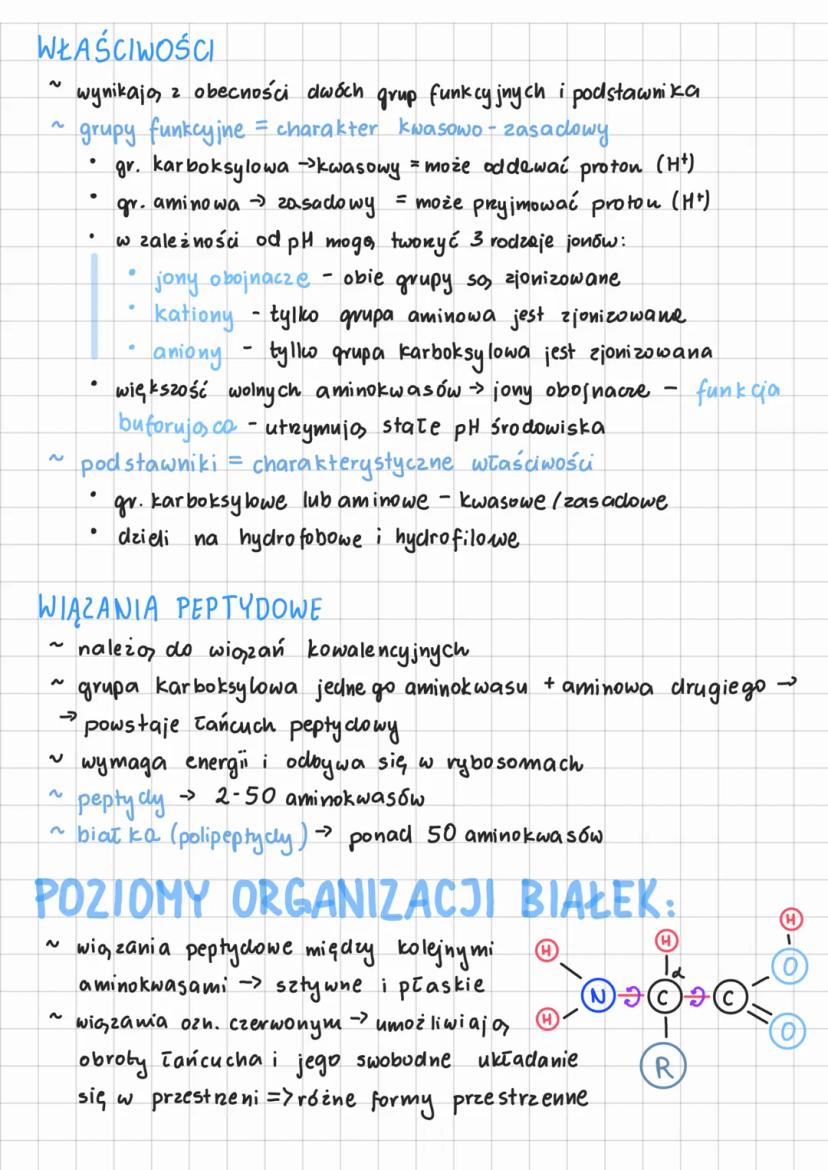 WŁAŚCIWOŚCI
~ wynikają z obecności dwóch grup funkcyjnych i podstawnika
~ grupy funkcyjne = charakter kwasowo-zasadowy
• gr. karboksylowa → kwasowy = może oddawać proton (H⁺)
• gr. aminowa → zasadowy = może przyjmować proton (H⁺)
• w zależności od pH mogą tworzyć 3 rodzaje jonów:
• jony obojnacze - obie grupy są zjonizowane
• kationy - tylko grupa aminowa jest zjonizowana
• aniony - tylko grupa karboksylowa jest zjonizowana
• większość wolnych aminokwasów → jony obojnacze - funkcja
buforująca - utrzymują stałe pH środowiska
~ podstawniki = charakterystyczne właściwości
• gr. karboksylowe lub aminowe - kwasowe/zasadowe
• dzieli na hydrofobowe i hydrofilowe
WIĄZANIA PEPTYDOWE
~ należą do wiązań kowalencyjnych
~ grupa karboksylowa jednego aminokwasu + aminowa drugiego →
→ powstaje łańcuch peptydowy
~ wymaga energii i odbywa się w rybosomach
~ peptydy → 2-50 aminokwasów
~ białka (polipeptydy) → ponad 50 aminokwasów
POZIOMY ORGANIZACJI BIAŁEK:
~ wiązania peptydowe między kolejnymi
aminokwasami → sztywne i płaskie
~ wiązania ozn. czerwonym → umożliwiają
obroty łańcucha i jego swobodne układanie
się w przestrzeni => różne formy przestrzenne
H H H
α O
N C C
H O
R